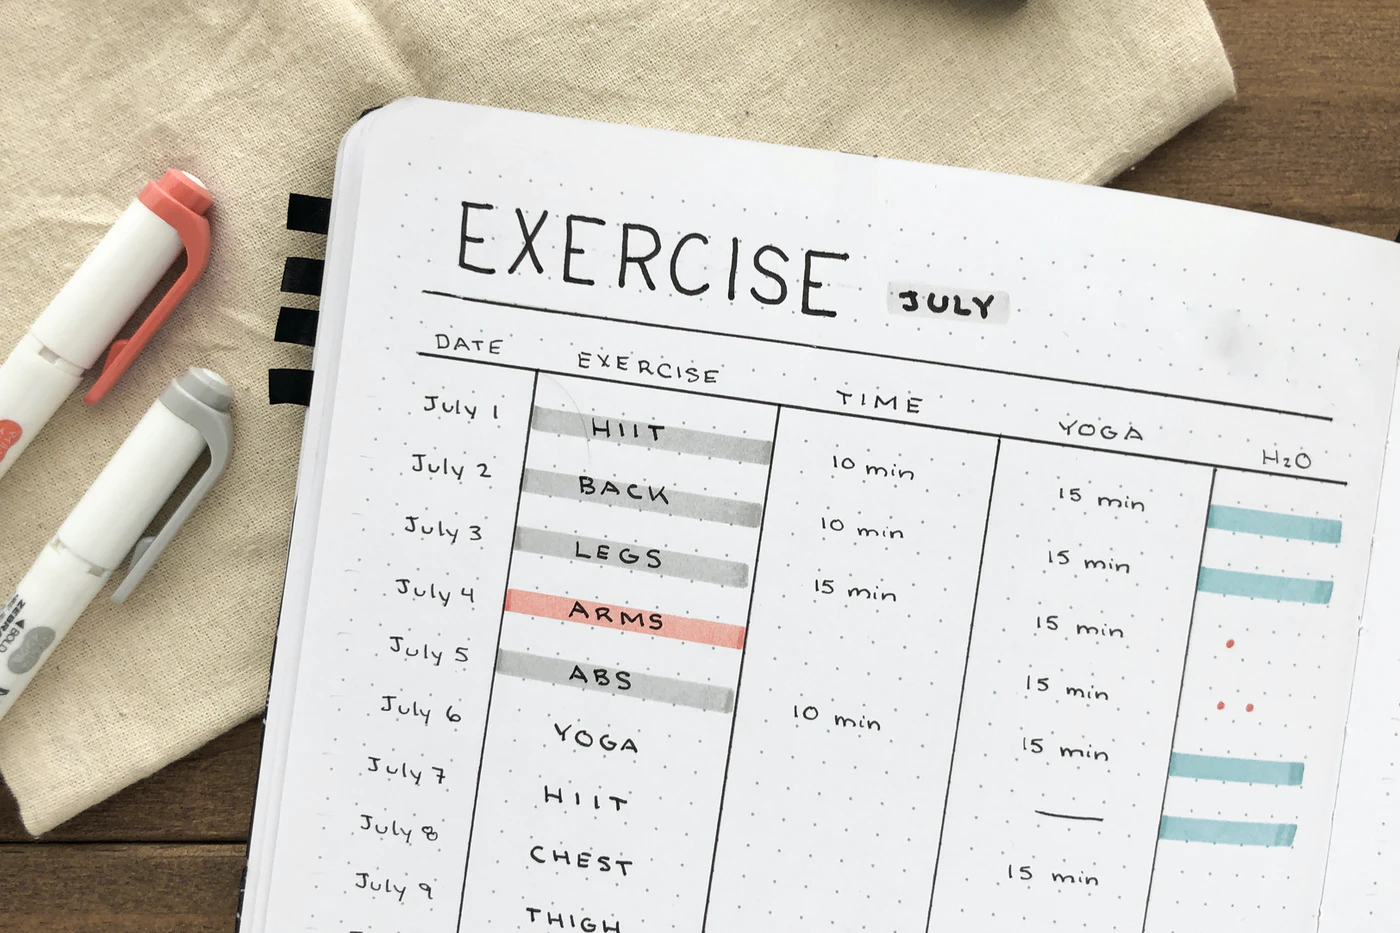 EXERCISE JULY
DATE EXERCISE TIME YOGA H₂O
July 1 HIIT 10 min 15 min
July 2 BACK 10 min 15 min
July 3 LEGS 15 min 15 min
July 4 ARMS 15 min
July 5 ABS 10 min 15 min
July 6 YOGA —
July 7 HIIT 15 min
July 8 CHEST
July 9 THIGH
ZEBRA
BOLD